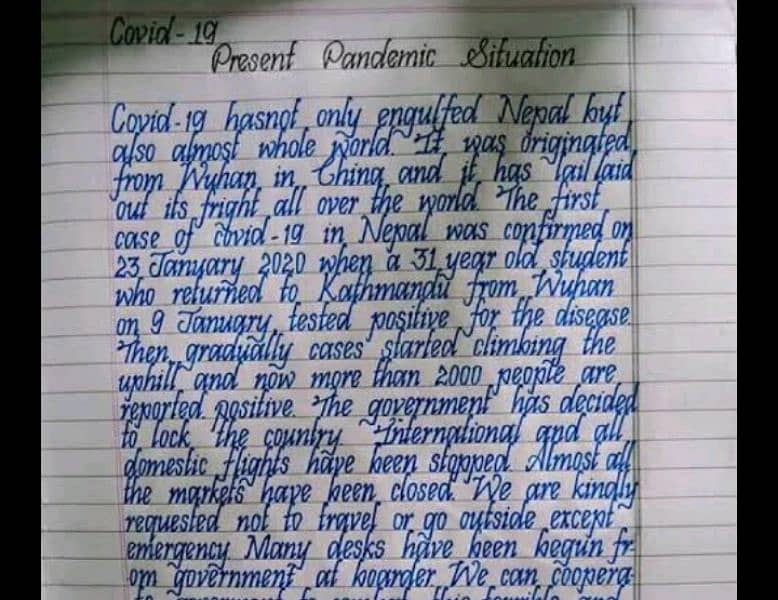 Covid-19
Present Pandemic Situation
Covid-19 hasnot only engulfed Nepal but
also almost whole world. It was originated
from Wuhan in China and it has lail laid
out its fright all over the world. The first
case of covid-19 in Nepal was confirmed on
23 January 2020 when a 31 year old student
who returned to Kathmandu from Wuhan
on 9 January, tested positive for the disease.
Then gradually cases started climbing the
uphill and now more than 2000 people are
reported positive. The government has decided
to lock the country. International and all
domestic flights have been stopped. Almost all
the markets have been closed. We are kindly
requested not to travel or go outside except
emergency. Many desks have been begun fr-
om government at boarder. We can coopera-